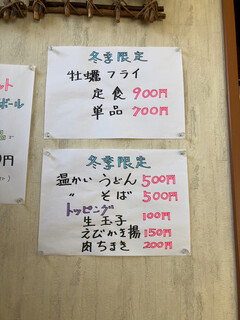 冬季限定
牡蠣フライ
定食 900円
単品 700円
冬季限定
温かい うどん 500円
〃 そば 500円
トッピング
生玉子 100円
えびかき揚 150円
肉ちまき 200円
ット
ボール
円